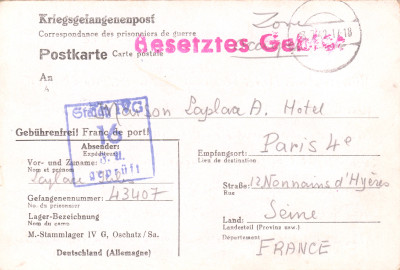 Kriegsgefangenenpost
Correspondance des prisonniers de guerre
Postkarte Carte postale
Zone
Besetztes Gebiet
An
4
Maison Laplace A. Hotel
Stalag IV G
16
geprüft
Gebührenfrei! Franc de port!
Absender:
Expéditeur:
Vor- und Zuname:
Nom et prénom
Laplace
Gefangenennummer: 43407
No. du prisonnier
Lager-Bezeichnung
Nom du camp
M.-Stammlager IV G, Oschatz/Sa.
Deutschland (Allemagne)
Empfangsort: Paris 4e
Lieu de destination
Straße: 12 Nonnams d'Hyères
Rue
Land: Seine
Landesteil (Provinz usw.)
Département
FRANCE